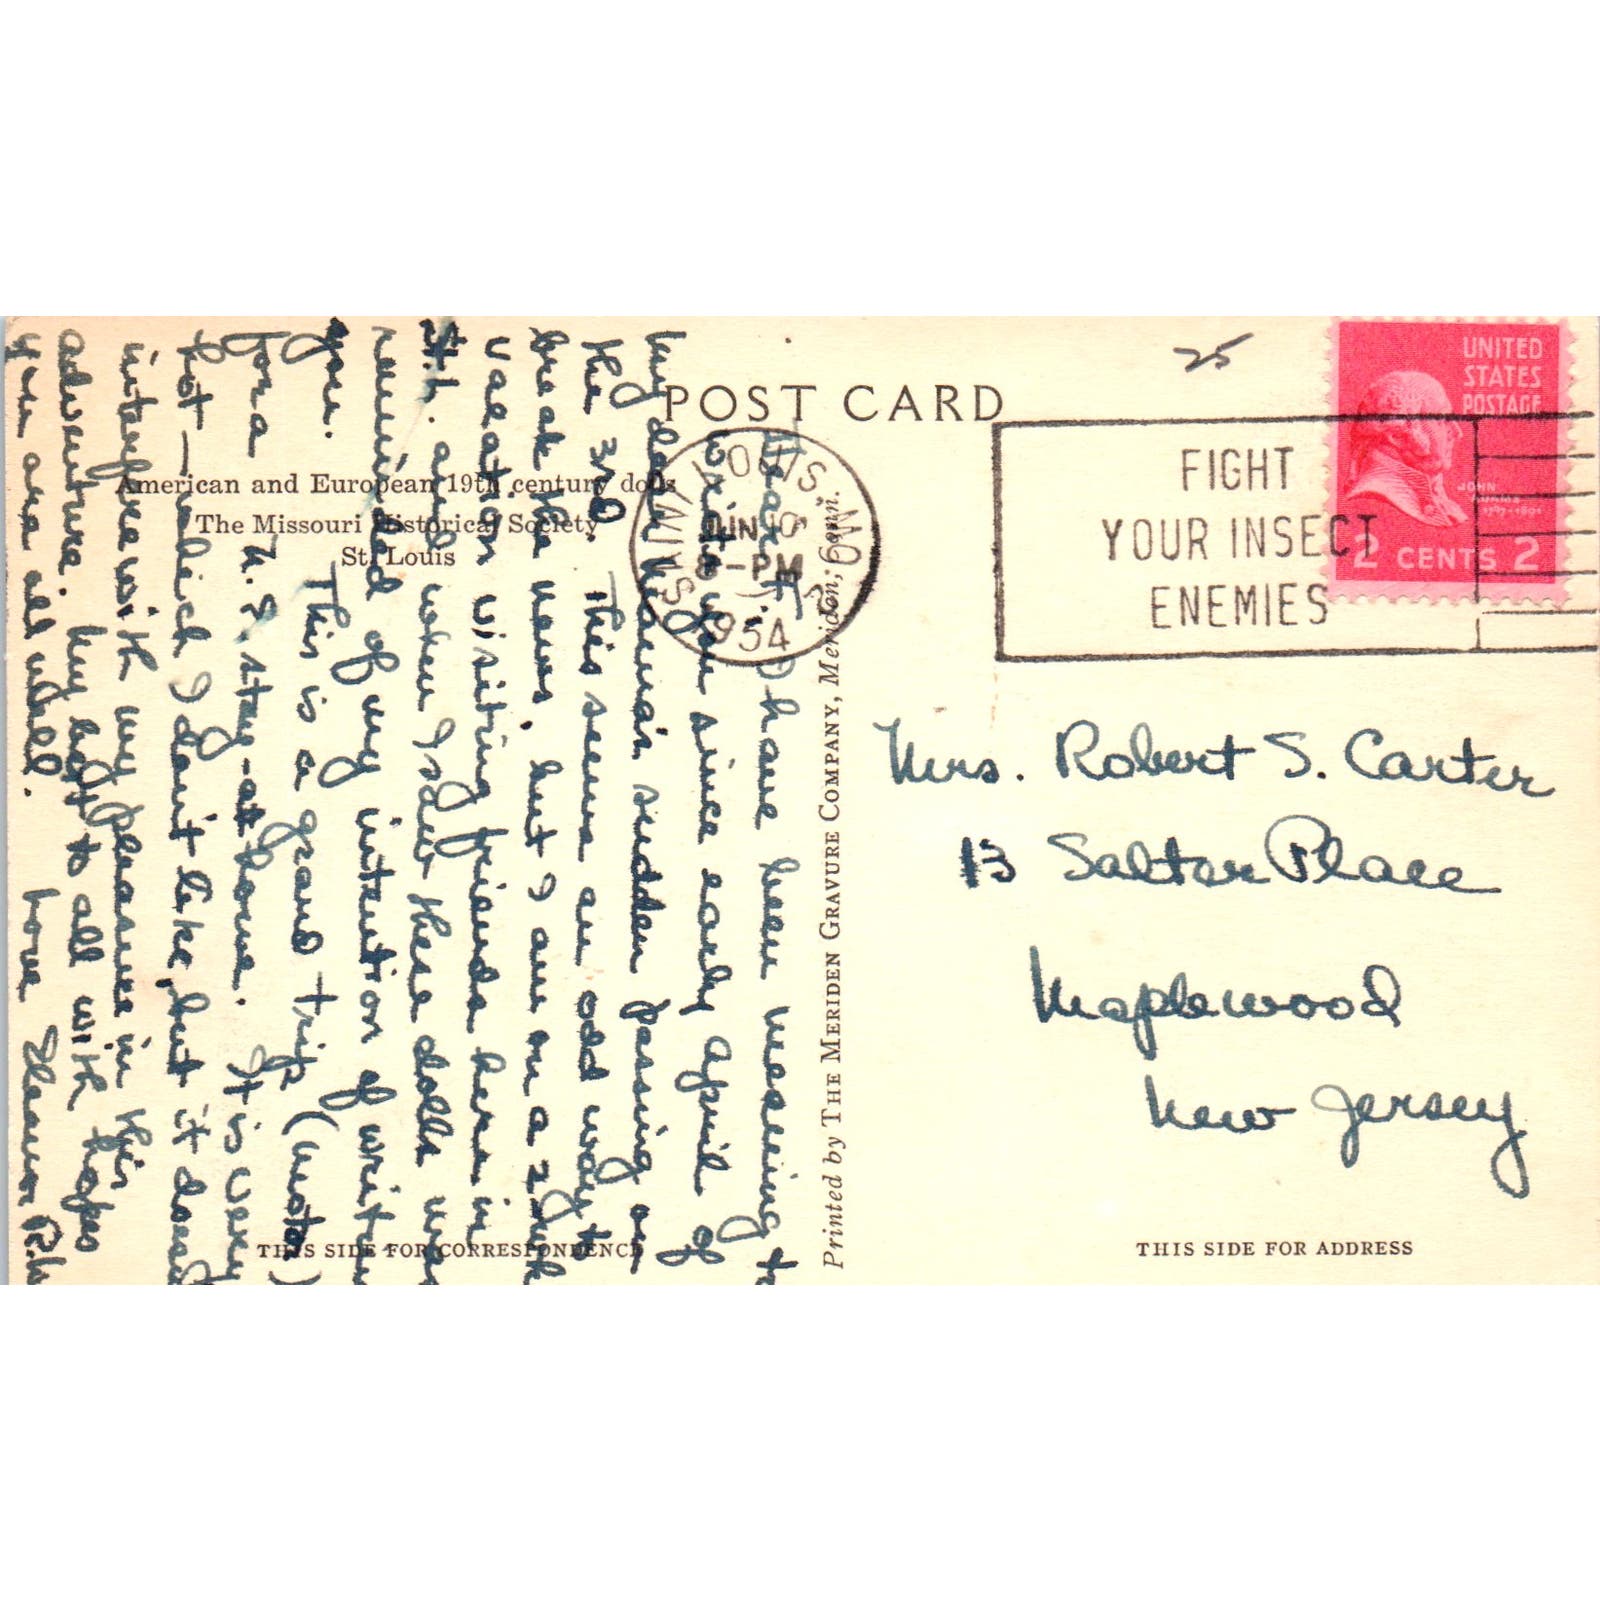 POST CARD
25
UNITED
STATES
POSTAGE
JOHN
ADAMS
1797-1801
2 CENTS 2
FIGHT
YOUR INSECT
ENEMIES
SAINT LOUIS MO
JUN
8-PM
1954
American and European 19th century dolls
The Missouri Historical Society
St. Louis
I have been meaning to
write you since early April of
my dear mama's sudden passing on
the 3rd. This seems an odd way to
break the news, but I am on a
vacation visiting friends here in
St. L. and when I saw these dolls was
reminded of my intention of writing
you. This is a grand trip (motor)
for a N.J. stay-at-home. It is very
hot — which I don't like, but it doesn't
interfere with my pleasure in this
adventure. My best to all with hopes
you are all well. Love Eleanor R.
Printed by THE MERIDEN GRAVURE COMPANY, Meriden, Conn.
Mrs. Robert S. Carter
13 Salter Place
Maplewood
New Jersey
THIS SIDE FOR CORRESPONDENCE
THIS SIDE FOR ADDRESS